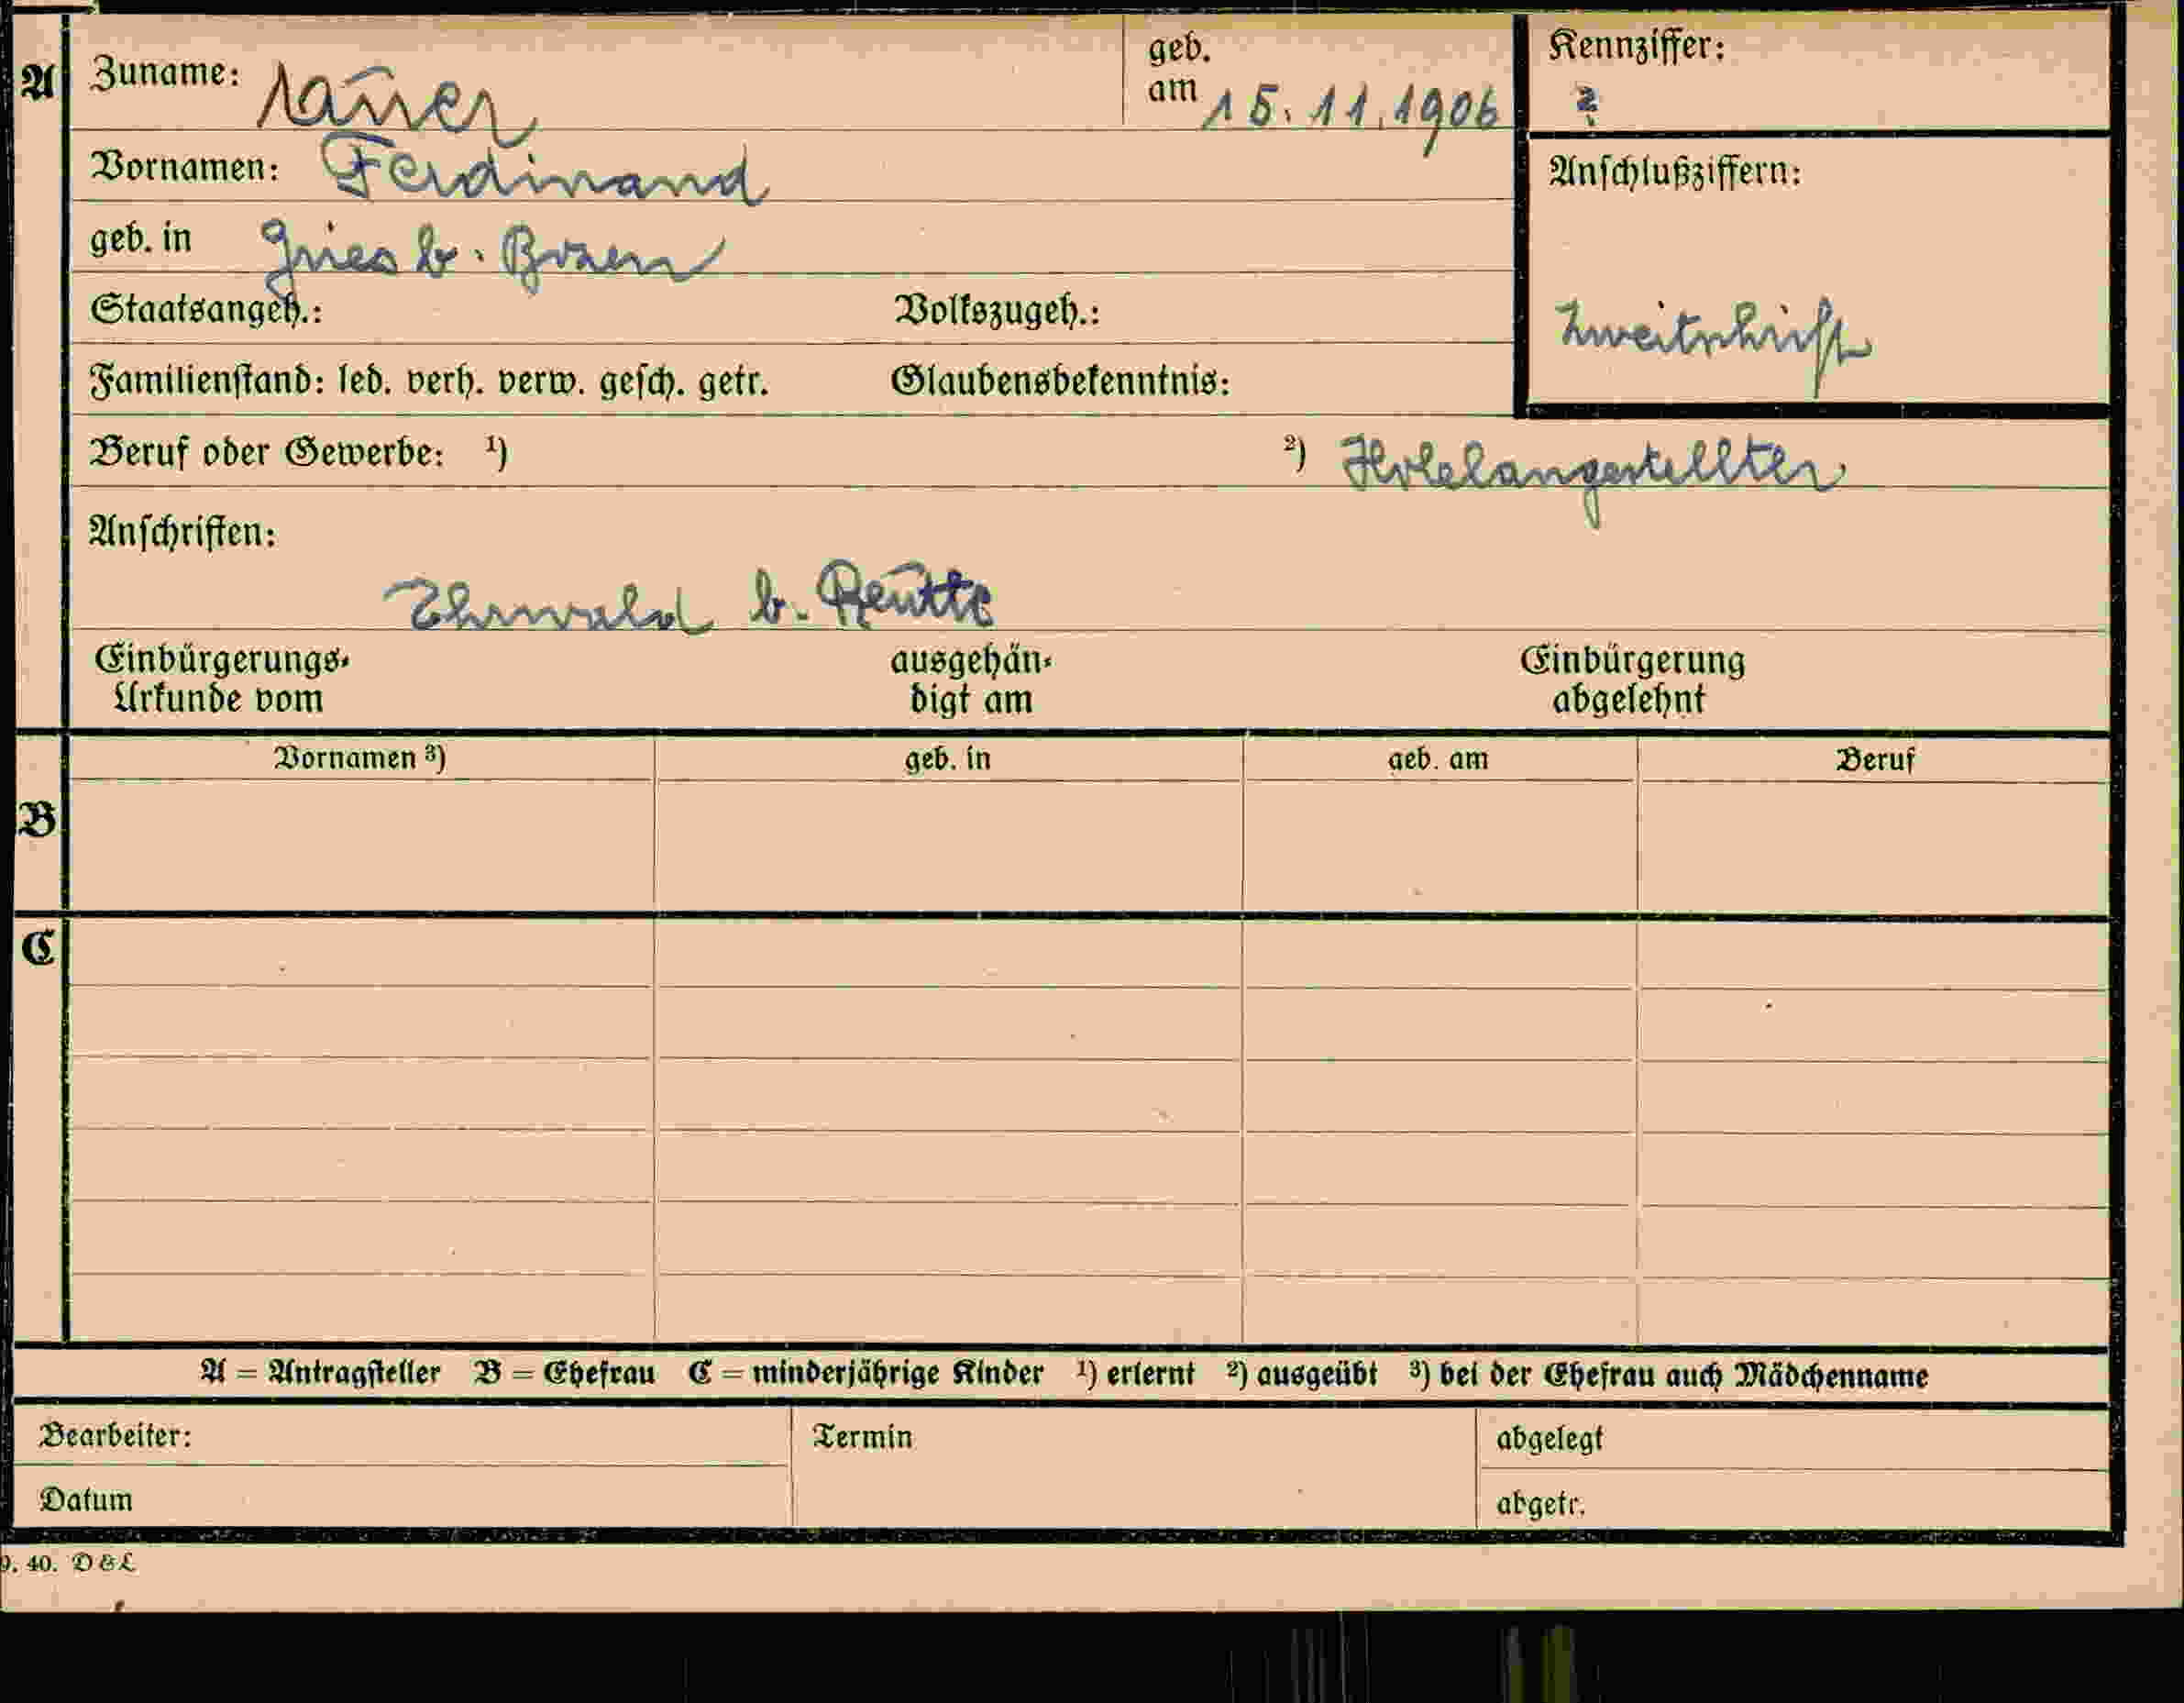 A Zuname: geb. am 15.11.1906 Kennziffer: ?
Vornamen: Ferdinand
Anschlußziffern:
geb. in Gries b. Bozen
Zweitschrift
Staatsangeh.: Volkszugeh.:
Familienstand: led. verh. verw. gesch. getr. Glaubensbekenntnis:
Beruf oder Gewerbe: ¹) ²) Hotelangestellter
Anschriften:
Ehrwald b. Reutte
Einbürgerungs- ausgehän- Einbürgerung
Urkunde vom digt am abgelehnt
Vornamen ³) geb. in geb. am Beruf
B
C
A = Antragsteller B = Ehefrau C = minderjährige Kinder ¹) erlernt ²) ausgeübt ³) bei der Ehefrau auch Mädchenname
Bearbeiter: Termin abgelegt
Datum abgetr.
9. 40. D & L